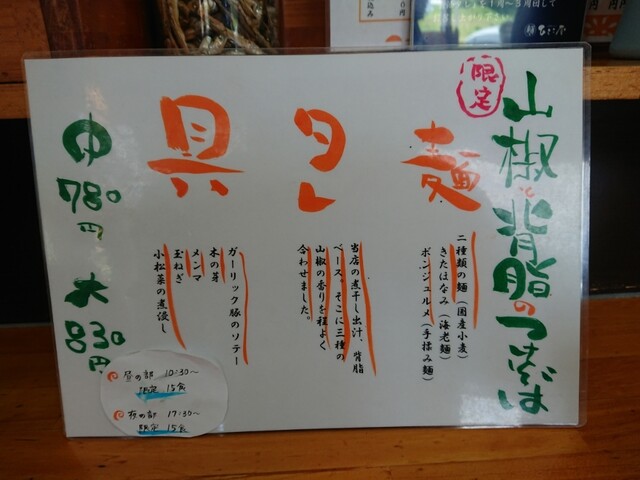 限定
山椒と背脂のつけそば
麺
二種類の麺(国産小麦)
きたほなみ(海老麺)
ボンジュルメ(手揉み麺)
タレ
当店の煮干し出汁、背脂
ベース。そこに三種の
山椒の香りを程よく
合わせました。
具
ガーリック豚のソテー
木の芽
メンマ
玉ねぎ
小松菜の煮浸し
中
780円
大
830円
昼の部 10:30〜
限定 15食
夜の部 17:30〜
限定 15食